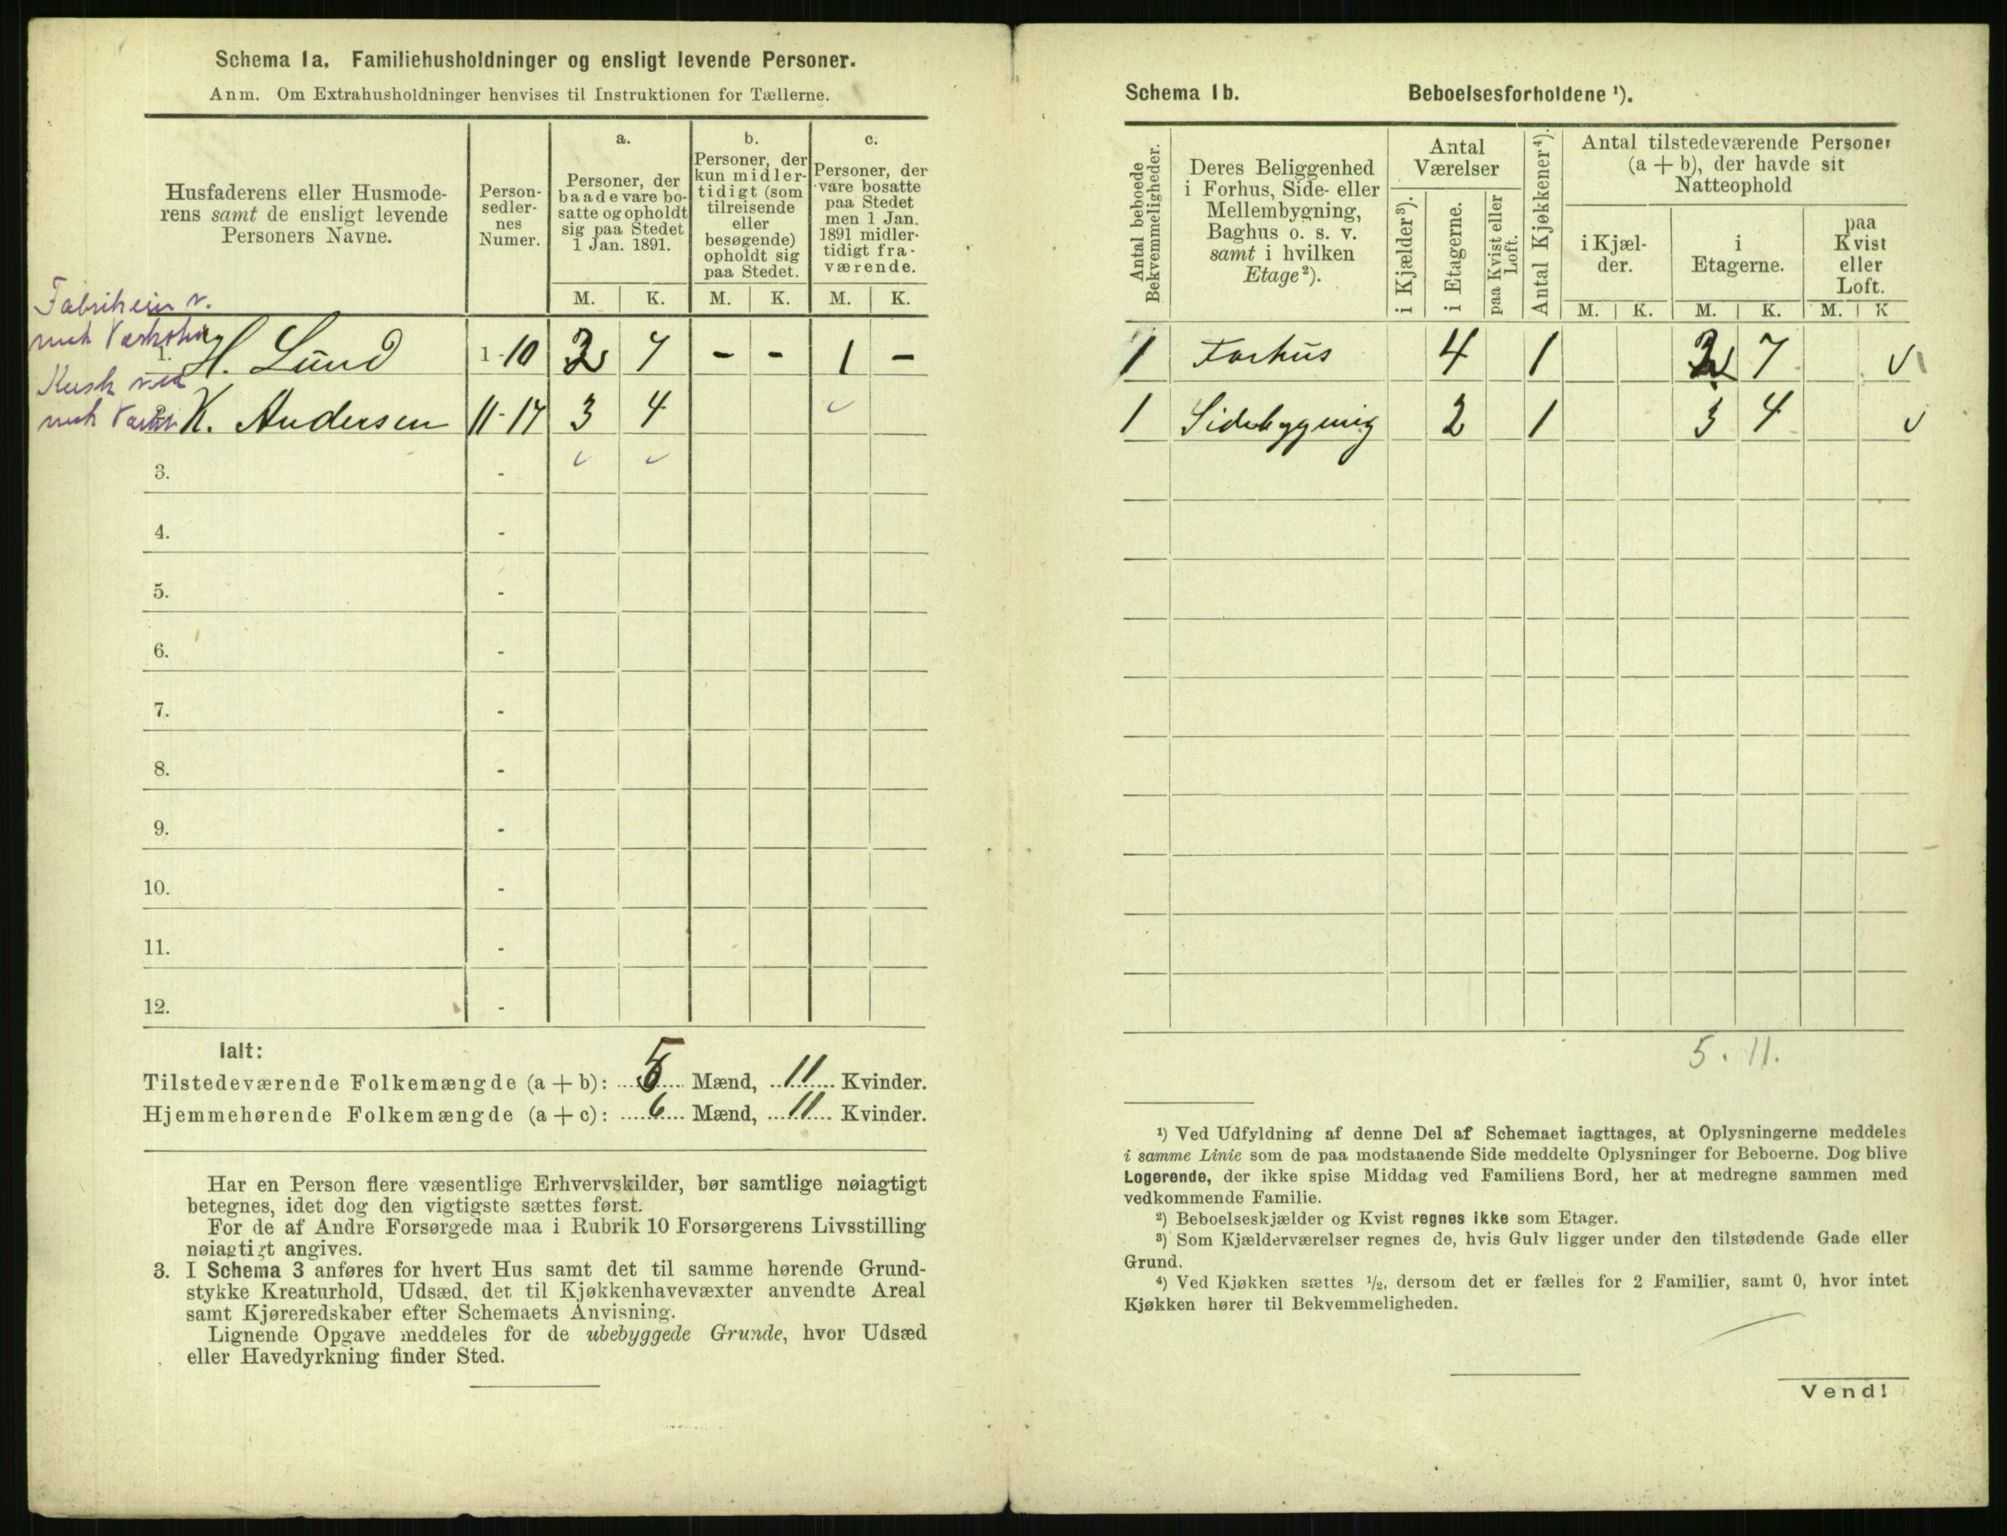 Schema 1a. Familiehusholdninger og ensligt levende Personer.
Anm. Om Extrahusholdninger henvises til Instruktionen for Tællerne.
Husfaderens eller Husmode-
rens samt de ensligt levende
Personers Navne.
Person-
sedler-
nes
Numer.
a.
Personer, der
baade vare bo-
satte og opholdt
sig paa Stedet
1 Jan. 1891.
b.
Personer, der
kun midler-
tidigt (som
tilreisende
eller
besøgende)
opholdt sig
paa Stedet.
c.
Personer, der
vare bosatte
paa Stedet
men 1 Jan.
1891 midler-
tidigt fra-
værende.
M. K. M. K. M. K.
1. H. Lund 1-10 2 7 - - 1 -
Kusk ved
2. K. Andersen 11-17 3 4
3. -
4. -
5. -
6. -
7. -
8. -
9. -
10. -
11. -
12. -
Ialt:
Tilstedeværende Folkemængde (a + b): 5 Mænd, 11 Kvinder.
Hjemmehørende Folkemængde (a + c): 6 Mænd, 11 Kvinder.
Har en Person flere væsentlige Erhvervskilder, bør samtlige nøiagtigt
betegnes, idet dog den vigtigste sættes først.
For de af Andre Forsørgede maa i Rubrik 10 Forsørgerens Livsstilling
nøiagtigt angives.
3. I Schema 3 anføres for hvert Hus samt det til samme hørende Grund-
stykke Kreaturhold, Udsæd, det til Kjøkkenhavevæxter anvendte Areal
samt Kjøreredskaber efter Schemaets Anvisning.
Lignende Opgave meddeles for de ubebyggede Grunde, hvor Udsæd
eller Havedyrkning finder Sted.
Schema 1b. Beboelsesforholdene ¹).
Antal beboede
Bekvemmeligheder.
Deres Beliggenhed
i Forhus, Side- eller
Mellembygning,
Baghus o. s. v.
samt i hvilken
Etage²).
Antal
Værelser
i Kjælder³).
i Etagerne.
paa Kvist eller
Loft.
Antal Kjøkkener⁴).
Antal tilstedeværende Personer
(a + b), der havde sit
Natteophold
i Kjæl-
der.
i
Etagerne.
paa
Kvist
eller
Loft.
M. K. M. K. M. K
1 Forhus 4 1 2 7
1 Sidebygning 2 1 3 4
5. 11.
¹) Ved Udfyldning af denne Del af Schemaet iagttages, at Oplysningerne meddeles
i samme Linie som de paa modstaaende Side meddelte Oplysninger for Beboerne. Dog blive
Logerende, der ikke spise Middag ved Familiens Bord, her at medregne sammen med
vedkommende Familie.
²) Beboelseskjælder og Kvist regnes ikke som Etager.
³) Som Kjælderværelser regnes de, hvis Gulv ligger under den tilstødende Gade eller
Grund.
⁴) Ved Kjøkken sættes ½, dersom det er fælles for 2 Familier, samt 0, hvor intet
Kjøkken hører til Bekvemmeligheden.
Vend!